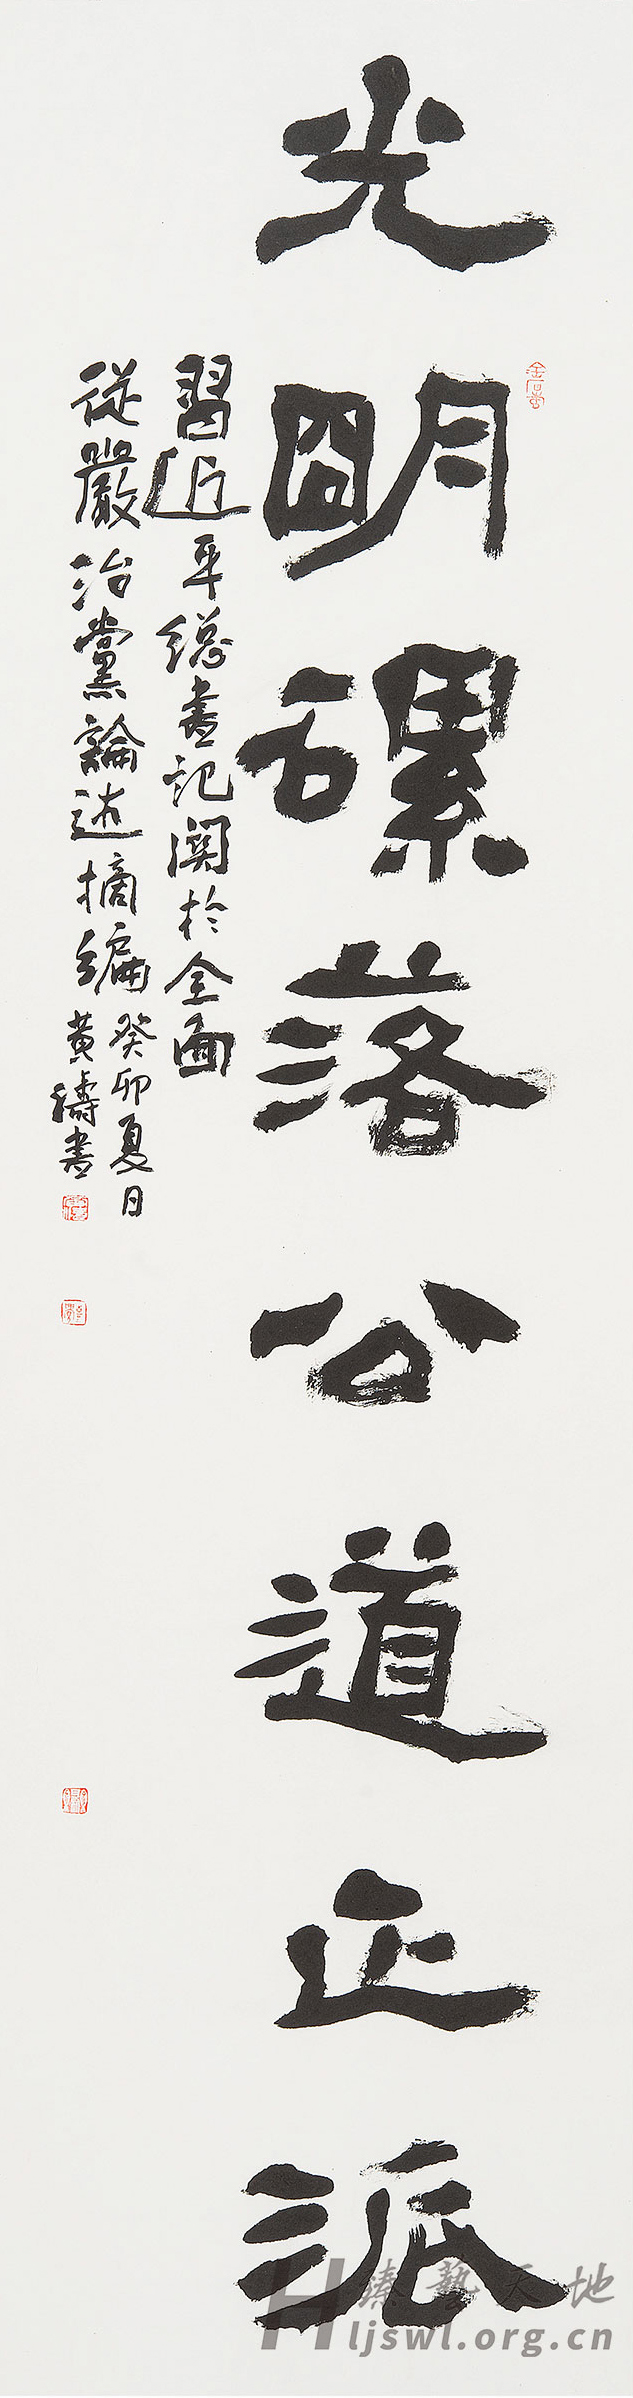 光明磊落公道正派
習近平總書記關於全面
從嚴治黨論述摘編
癸卯夏日
黄濤書
臻藝天地
Hljswl.org.cn